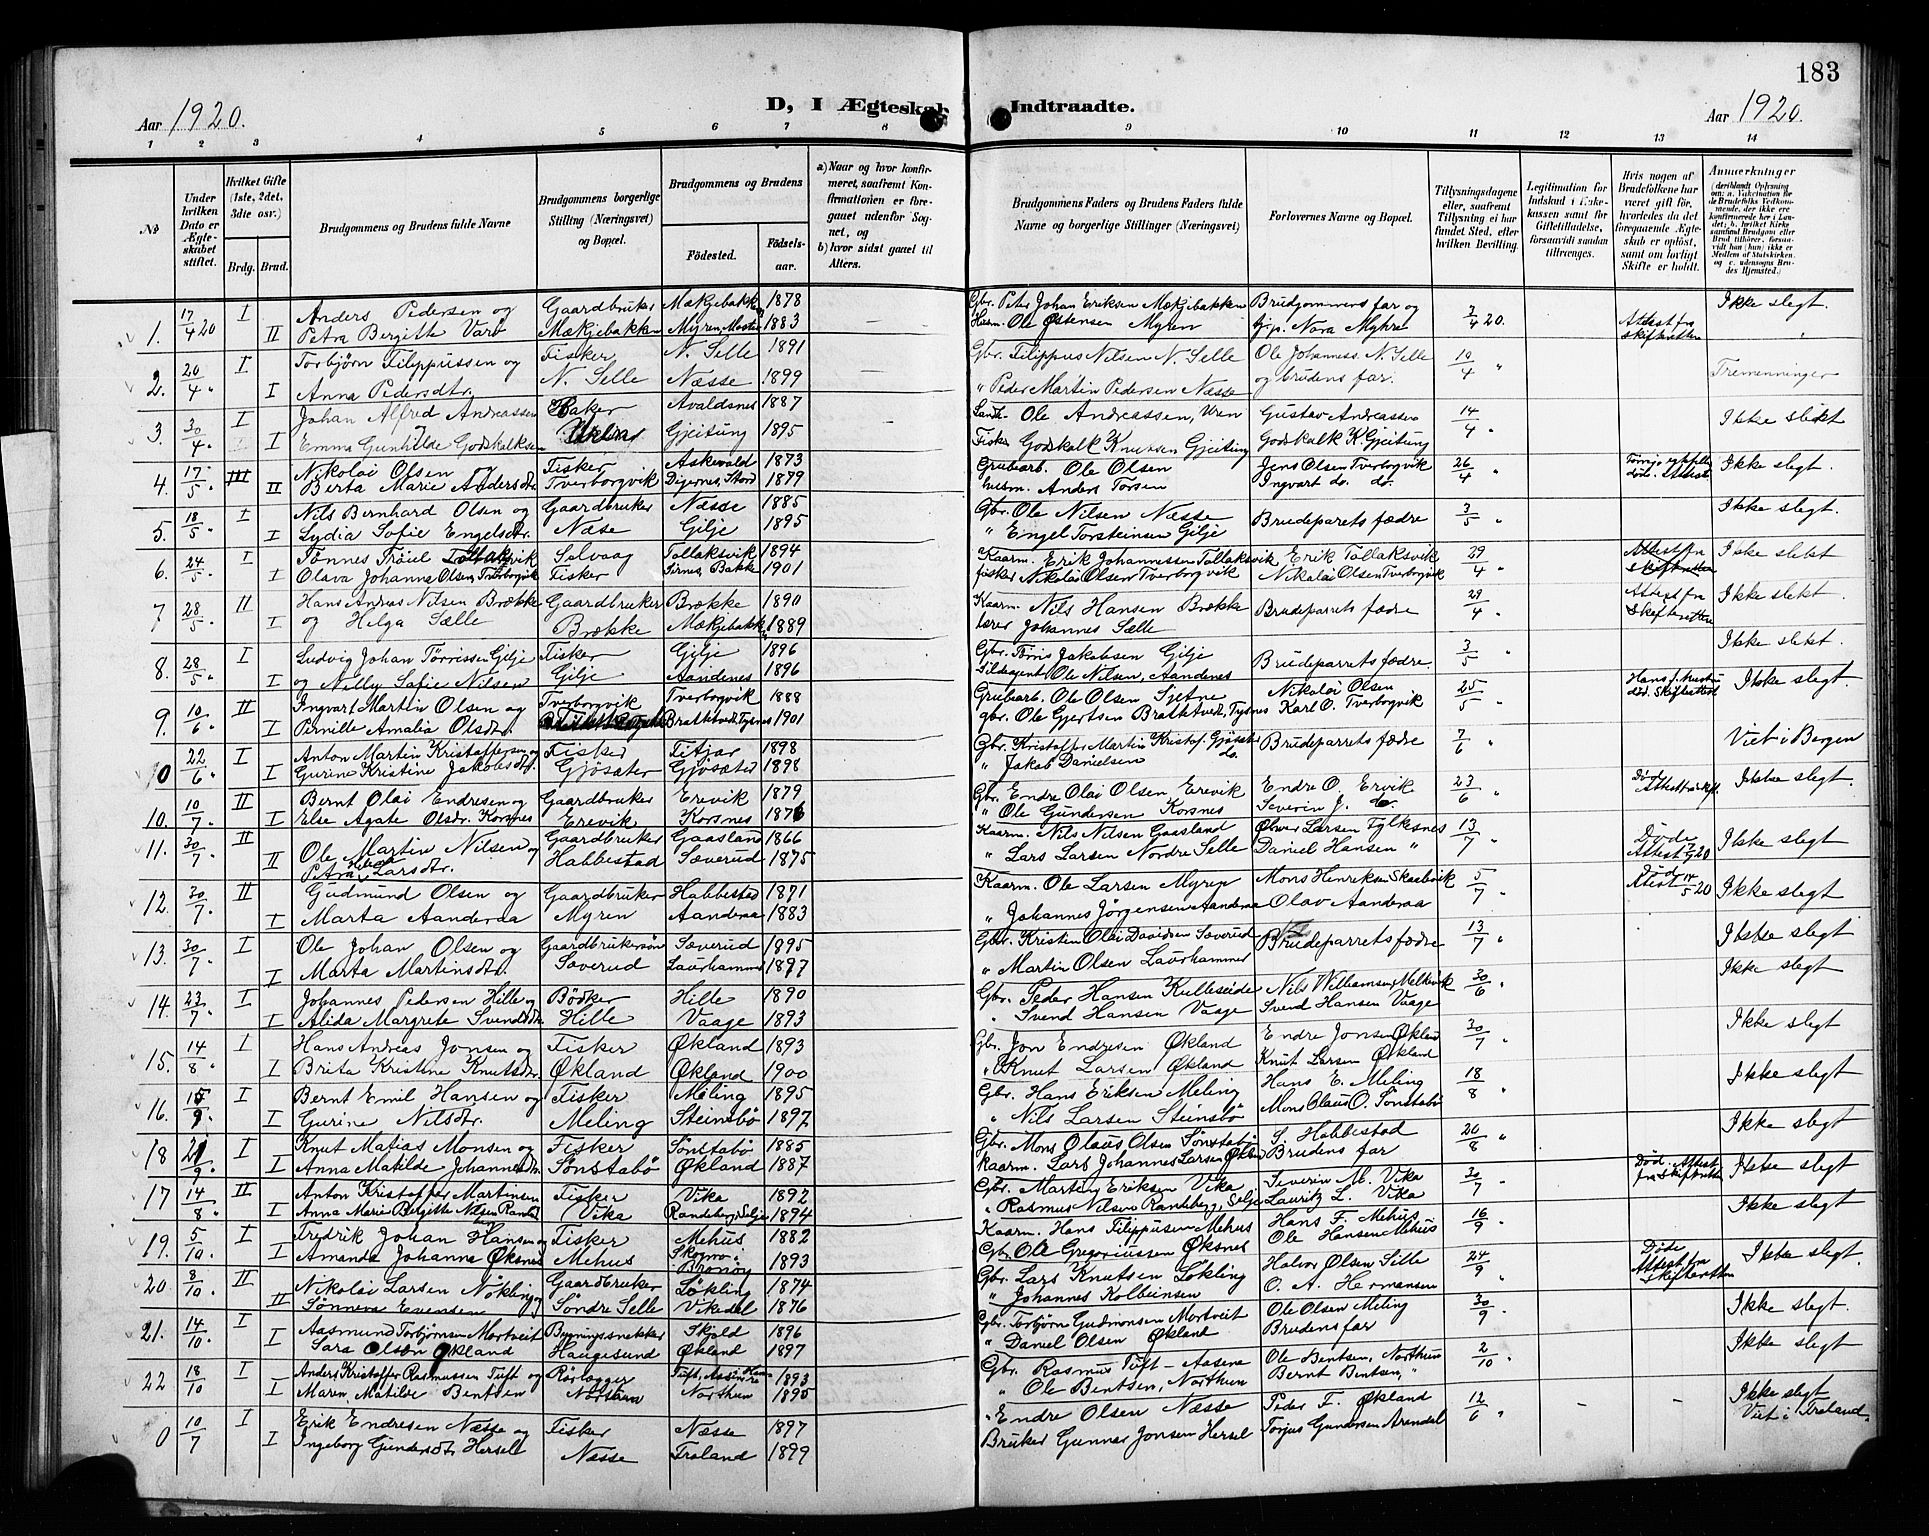 183
Aar 1920.
D, I Ægteskab Indtraadte.
Aar 1920.
1 2 3 4 5 6 7 8 9 10 11 12 13 14
No
Under hvilken Dato er Ægteskabet stiftet.
Hvilket Gifte (1ste, 2det, 3dte osv.)
Brdg. Brud.
Brudgommens og Brudens fulde Navne
Brudgommens borgerlige Stilling (Næringsvei) og Bopæl.
Brudgommens og Brudens
Fødested. Fødselsaar.
a) Naar og hvor konfirmeret, saafremt Konfirmationen er foregaaet udenfor Sognet, og
b) hvor sidst gaaet til Alters.
Brudgommens Faders og Brudens Faders fulde Navne og borgerlige Stillinger (Næringsvei)
Forlovernes Navne og Bopæl.
Tillysningsdagene eller, saafremt Tillysning ei har fundet Sted, efter hvilken Bevilling.
Legitimation for Indskud i Enkekassen samt for Giftetilladelse, forsaavidt saadan tiltrænges.
Hvis nogen af Brudefolkene har været gift før, hvorledes da det foregaaende Ægteskab er opløst, samt om lovligt Skifte er holdt.
Anmærkninger
1. 17/4 20 I Anders Pedersen og Gaardbruker Mækjebakken 1878 Gbr. Peter Johan Eriksen Mækjebakken Brudgommens far og 2/4 20. Ikke slegt.
II Petra Bergitte Vare Mækjebakken Myren, Moster 1883 Husm. Ole Østensen Myren gjp. Nora Myhre Attest fra skifteretten
2. 20/4 I Torbjørn Filippussen og Fisker N. Selle 1891 Gbr. Filippus Nilsen N. Selle Ole Johanness. N. Selle 10/4 " Tremenninger
I Anna Pedersdtr. N. Selle Næsse 1899 " Peder Martin Pedersen Næsse og brudens far.
3. 30/4 I Johan Alfred Andreassen Baker Avaldsnes 1887 Ole Andreassen, Uren Gustav Andreassen 14/4 " Ikke slekt
I Emma Gunhilde Godskalksen Gjeitung 1895 Fisker Godskalk Knutsen Gjeitung Godskalk K. Gjeitung
4. 17/5 III Nikolai Olsen og Fisker Askevold 1873 Grubearb. Ole Olsen Jens Olsen Tverborgvik 26/4 " Ikke slegt.
II Berta Marie Andersdtr. Tverborgvik Digernes, Stord 1879 husm. Anders Torsen Ingvart do. do.
5. 18/5 I Nils Bernhard Olsen og Gaardbruker Næsse 1885 Gbr. Ole Nilsen Næsse Brudeparrets fædre 3/5 " Ikke slegt.
I Lydia Sofie Engelsdtr. Næse Gilje 1895 " Engel Torsteinsen Gilje
6. 24/5 I Tønnes Trøil Tollaksvik Salvaag Tollaksvik 1894 Kaarm. Erik Johannessen Tollaksvik Erik Tollaksvik 29/4 Attest fra skifteretten Ikke slekt
I Olava Johanna Olsen, Tverborgvik Fisker Bakke 1901 fisker Nikolai Olsen Tverborgvik Nikolai Olsen Tverborgvik
7 28/5 II Hans Andreas Nilsen Brække Gaardbruker Brække 1890 Kaarm. Nils Hansen Brække Brudeparrets fædre 29/4 Attest fra Skifteretten Ikke slekt.
I og Helga Sælle Brække Mækjebakken 1889 lærer Johannes Sælle
8. 28/5 I Ludvig Johan Tørrissen Gilje Fisker Gilje 1896 Gbr. Tørris Jakobsen Gilje Brudeparrets fædre. 3/5 " Ikke slekt.
I og Nelly Sofie Nilsen Gilje Aandenes 1896 Sildeagent Ole Nilsen, Aandenes
9. 10/6 II Ingvart Martin Olsen og Tverborgvik Tverborgvik 1888 Grubearb. Ole Olsen Sjetne Nikolai Olsen 25/5 " Ikke slegt.
I Pernille Amalia Olsdtr. Brathtvedt, Tysnes 1901 gbr. Ole Gjertsen Brathtvedt, Tysnes Karl O. Tverborgvik
0 22/6 I Anton Martin Kristoffersen og Fisker Fitjar 1898 Gbr. Kristoffer Martin Kristof. Gjøsæter Brudeparrets fædre 7/6 " Viet i Bergen
I Gurine Kristine Jakobsdtr. Gjøsæter Gjøsæter 1898 " Jakob Danielsen do.
10. 10/7 II Bernt Olai Endresen og Gaardbruker Erevik 1879 Gbr. Endre Olai Olsen Erevik Endre O. Ervik 23/6 " Ikke slegt.
I Else Agate Olsdr. Korsnes Erevik Korsnes 1876 " Ole Gundersen Korsnes Severin J. do.
11. 30/7 II Ole Martin Nilsen og Gaardbruker Gaasland 1866 Kaarm. Nils Nilsen Gaasland Oliver Larsen Fylkesnes 13/7 Døde Attest 17/7 20 Ikke slegt
II Petra Helga Larsdtr. Habbestad Sæverud 1875 " Lars Larsen Nordre Selle Daniel Hansen " "
12. 30/7 II Gudmund Olsen og Gaardbruker Habbestad 1871 Kaarm. Ole Larsen Myren Mons Henriksen Skaalevik 5/7 " Død Attest 14/5 20 Ikke slegt
I Marta Aanderaa Myren Aanderaa 1883 " Johannes Jørgensen Aanderaa Olav Aanderaa
13. 30/7 I Ole Johan Olsen og Gaardbrukersøn Sæverud 1895 Gbr. Kristen Olai Davidsen Sæverud Brudeparrets fædre 13/7 " Ikke slegt
I Marta Martinsdtr. Sæverud Laurhammer 1897 " Martin Olsen Laurhammer
14. 23/7 I Johannes Pedersen Hille og Bødker Hille 1890 Gbr. Peder Hansen Kulleseide Nils Wilhamsen, Melkevik 30/6 " Ikke slegt
I Alida Margrete Svendsdtr. Hille Vaage 1893 " Svend Hansen Vaage Svend Hansen Vaage
15. 14/8 I Hans Andreas Jonsen og Fisker Økland 1893 Gbr. Jon Endresen Økland Endre Jonsen Økland 30/7 " Ikke slegt
I Brita Kristine Knutsdtr. Økland Økland 1900 " Knut Larsen Økland Knut Larsen Økland
16. 15/9 I Bernt Emil Hansen og Fisker Meling 1895 Gbr. Hans Eriksen Meling Hans E. Meling 18/8 " Ikke slegt
I Gurine Nilsdtr. Meling Steinsbø 1897 " Nils Larsen Steinsbø Mons Olaus O. Sønstabø
18 21/9 I Knut Matias Monsen og Fisker Sønstabø 1885 Gbr. Mons Olaus Olsen Sønstabø S. Habbestad 20/8 " Ikke slegt
I Anna Matilde Johannesdtr. Sønstabø Økland 1887 kaarm. Lars Johannes Larsen Økland Brudens far
17 14/8 II Anton Kristoffer Martinsen Fisker Vika 1892 Gbr. Martin Eriksen Vika Severin M. Vika 30/7 " Død. Attest fra Skifteretten Ikke slegt
I Anna Marie Bergitte Nilsen Vika Randeberg, Selje 1894 " Rasmus Nilsen Randeberg, Selje Lauritz L. Vika
19. 5/10 I Fredrik Johan Hansen og Fisker Mehus 1882 Kaarm. Hans Filippusen Mehus Hans F. Mehus 16/9 " Ikke slegt
I Amanda Johanna Øksnes Mehus Skogmo i Brønøy 1893 Gbr. Ole Gregoriussen Øksnes Ole Hansen Mehus
20. 8/10 II Nikolai Larsen Nökling og Gaardbruker Løkling 1874 Gbr. Lars Knutsen Løkling Halvor Olsen Sille 24/9 " Døde Attest fra Skifteretten Ikke slegt
II Sønneva Evensen Søndre Selle Vikedal 1876 " Johannes Kolbeinsen O. A. Hermansen
21. 14/10 I Aasmund Torbjørnsen Mortveit Bygningssnekker Skjold 1896 Gbr. Torbjørn Gudmonsen Mortveit Ole Olsen Meling 30/9 " Ikke slegt.
I Sara Olsen Økland Haugesund Økland 1897 " Daniel Olsen Økland Brudens far
22 18/10 I Anders Kristoffer Rasmussen Tuft og Rørlægger 1893 Gbr. Rasmus Tuft - Aasene Ole Bentsen, Northun 2/10 " Ikke slegt
I Maren Matilde Bentsen Northun Northun 1895 " Ole Bentsen, Northun Bernt Bentsen, "
0 10/7 I Erik Endresen Næsse og Fisker Næsse 1897 " Endre Olsen Næsse Peder F. Økland 12/6 " - - Ikke slegt
I Ingeborg Gundersdtr. Hersel Næsse Froland 1899 Bruker Gunnar Jonsen Hersel Torjus Gundersen Arendal Viet i Froland.